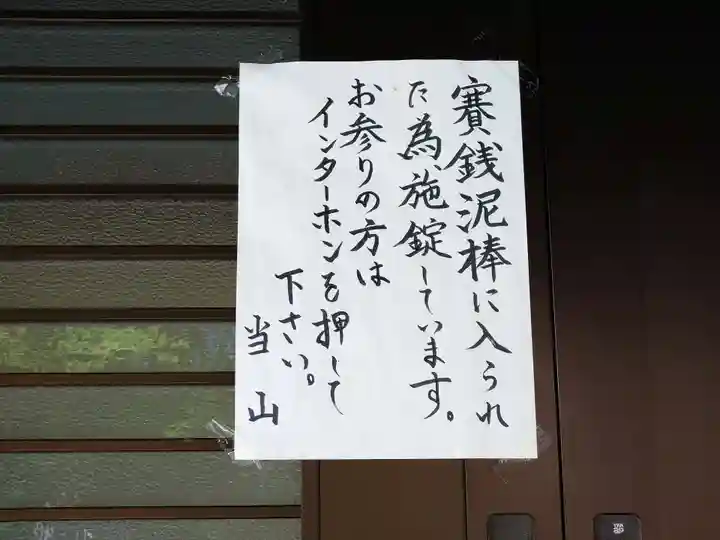 賽銭泥棒に入られ
た為、施錠しています。
お参りの方は
インターホンを押して
下さい。
当山